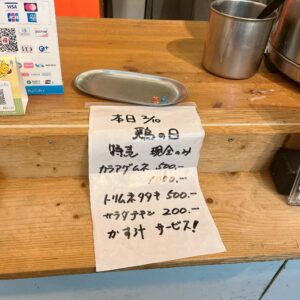 本日 2/10
鶏の日
特売 現金のみ
カラアゲムネ 500.—
1050.—
トリムネタタキ 500.—
サラダチキン 200.—
かす汁 サービス!
VISA